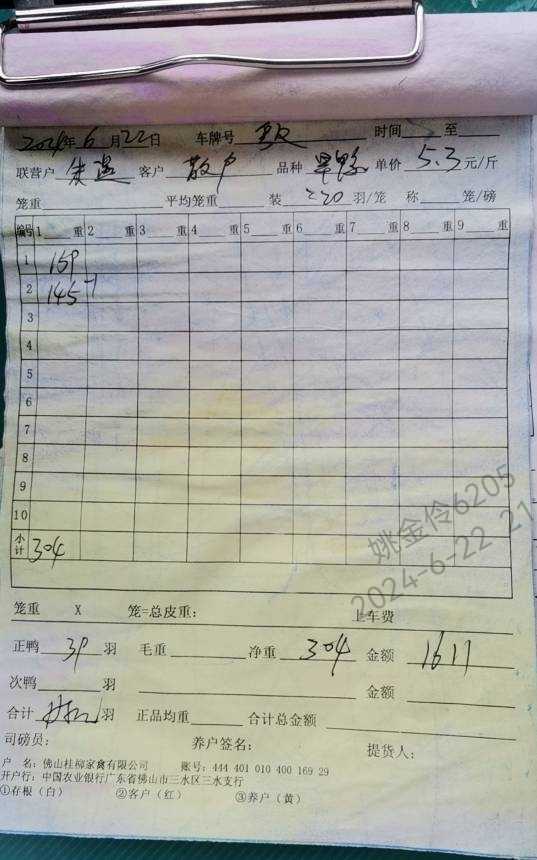 2024年6月22日 车牌号 时间 至
联营户 朱 客户 散户 品种 旱鸭 单价 5.3 元/斤
笼重 平均笼重 装 220 羽/笼 称 笼/磅
编号 1 重 2 重 3 重 4 重 5 重 6 重 7 重 8 重 9 重
1 159
2 145-1
3
4
5
6
7
8
9
10
小计 304
笼重 X 笼=总皮重: 上车费
正鸭 39 羽 毛重 净重 304 金额 1611
次鸭 羽 金额
合计 羽 正品均重 合计总金额
司磅员: 养户签名: 提货人:
户 名: 佛山桂柳家禽有限公司 账号: 444 401 010 400 169 29
开户行: 中国农业银行广东省佛山市三水区三水支行
①存根(白) ②客户(红) ③养户(黄)
姚金伶6205
2024-6-22 21